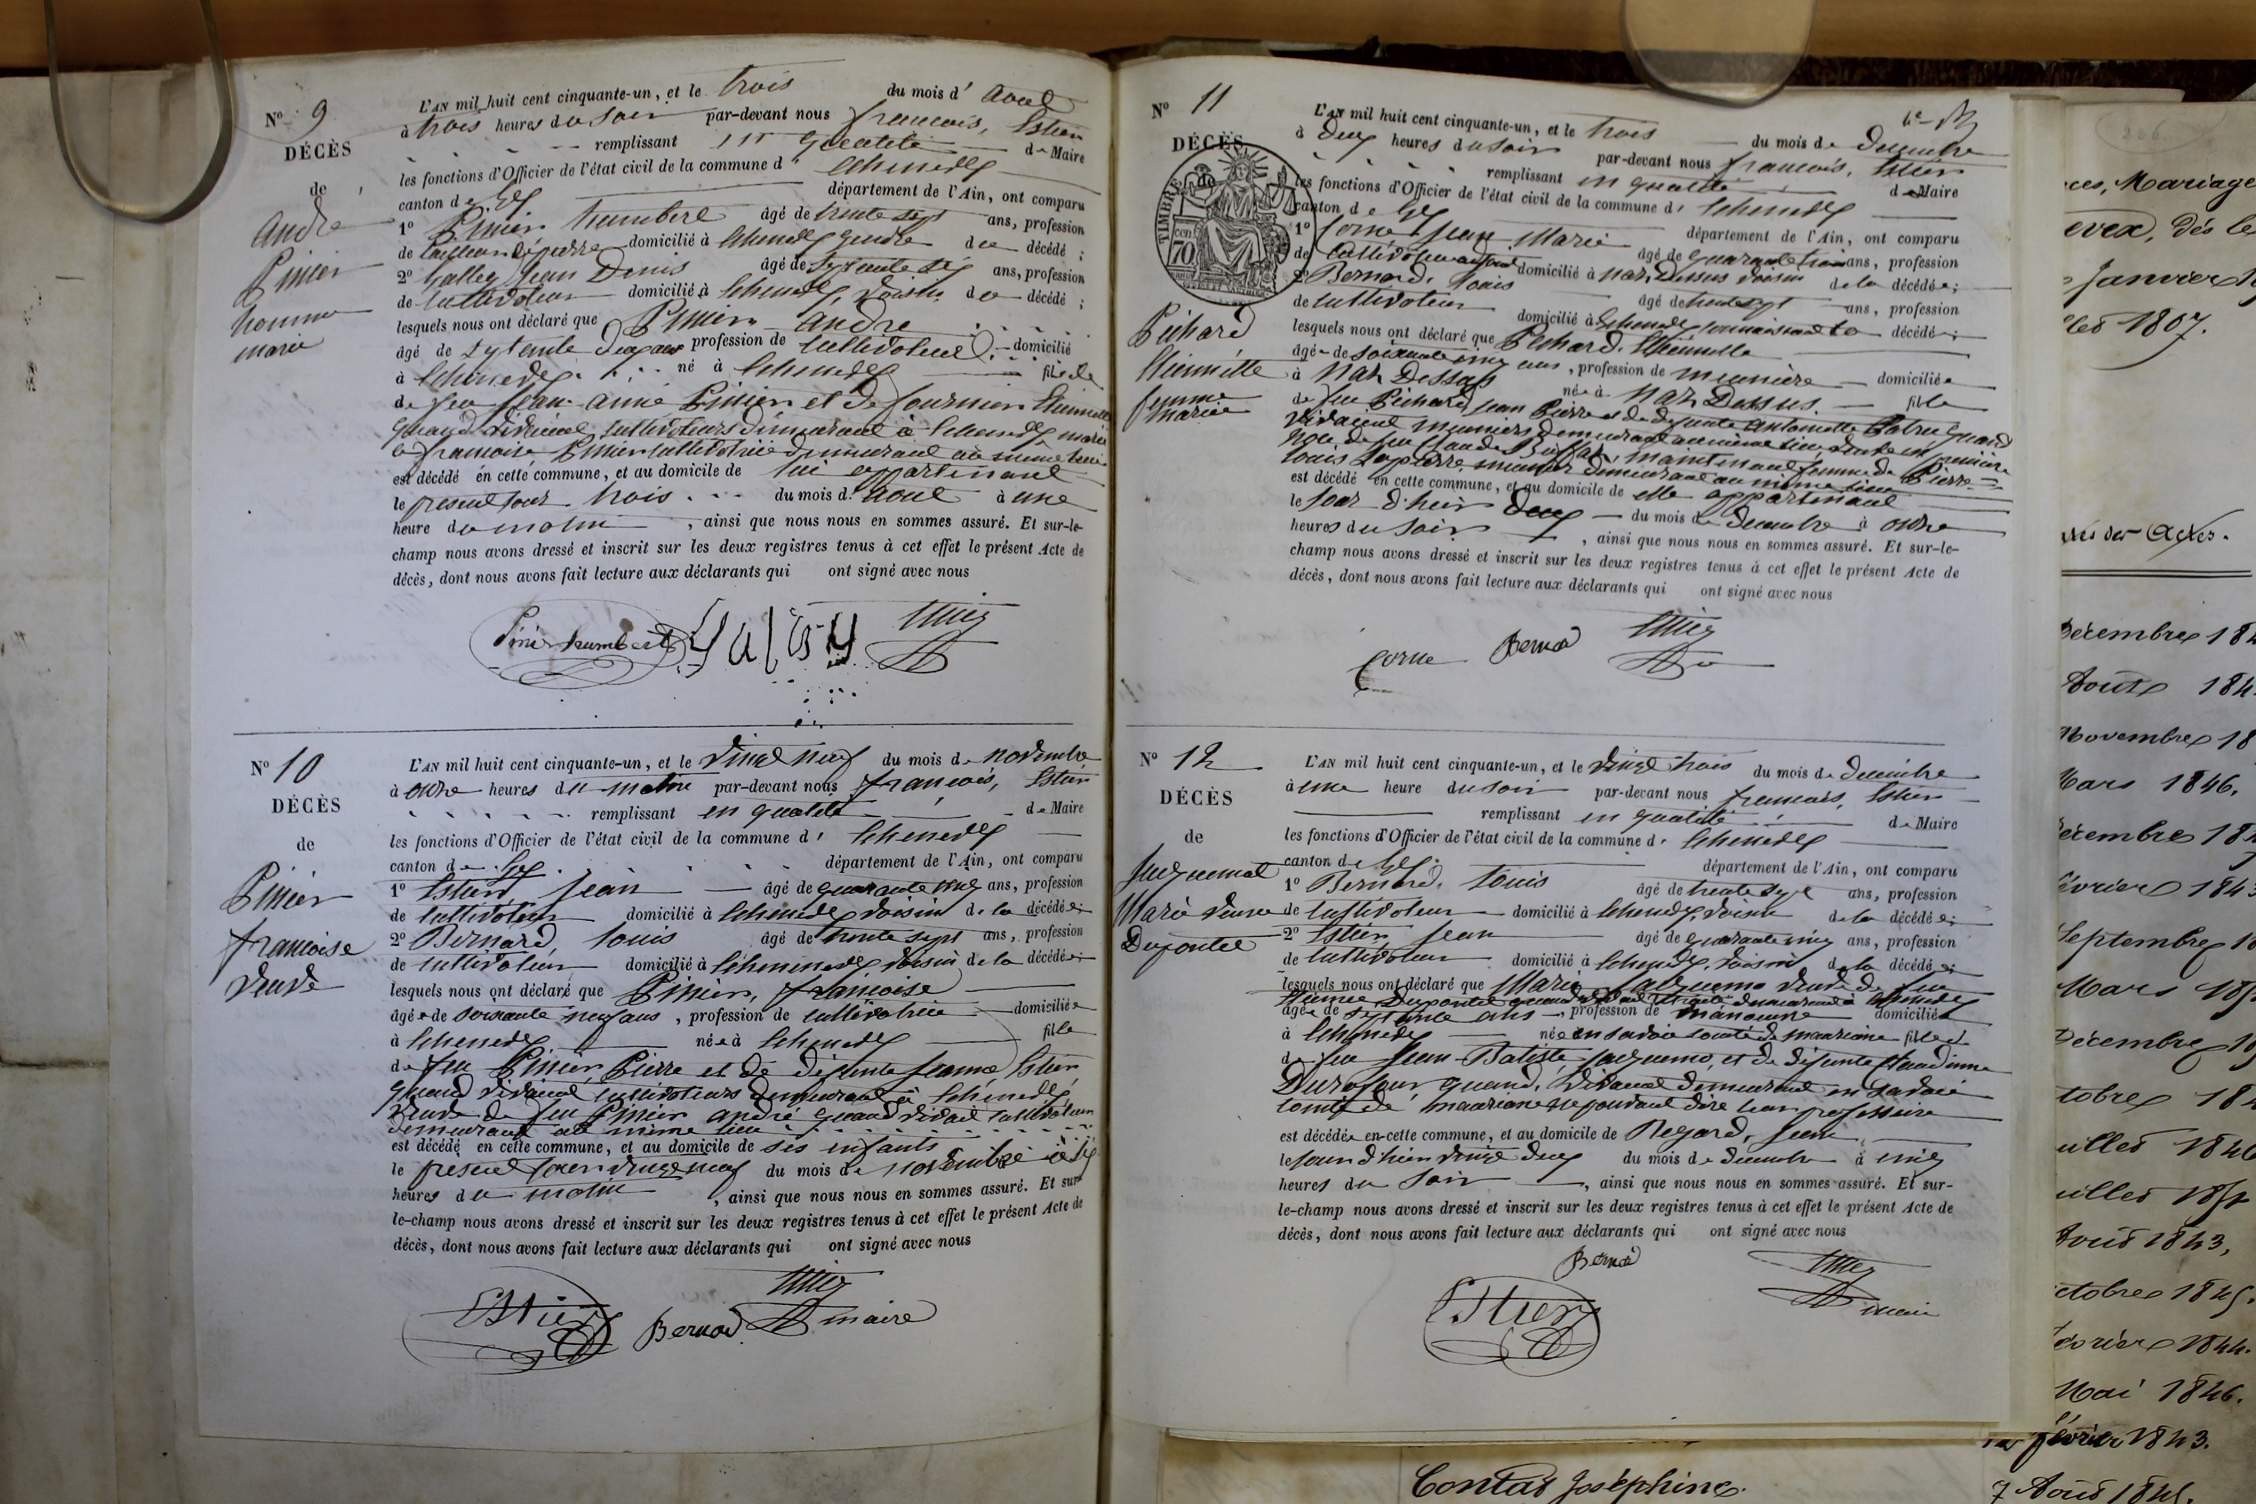 N° 9
DÉCÈS
de
andre
Pinier
homme
marié
L'AN mil huit cent cinquante-un, et le trois du mois d' aout
à trois heures du soir par-devant nous françois, Estier
remplissant en qualité de Maire
les fonctions d'Officier de l'état civil de la commune d' Echenevex
canton de Gex département de l'Ain, ont comparu
1° Pinier humbert âgé de trente sept ans, profession
de domicilié à Echenevex gendre du décédé ;
2° Jean Denis âgé de ans, profession
de cultivateur domicilié à Echenevex, voisin du décédé ;
lesquels nous ont déclaré que Pinier andre
âgé de septente deux ans profession de cultivateur domicilié
à Echenevex né à Echenevex fils de
de feu Jean aimé Pinier et de fournier
quand vivaient cultivateurs demeurant à Echenevex marié
à françoise Pinier cultivatrice demeurant au meme lieu
est décédé en cette commune, et au domicile de lui appartenant
le present jour trois du mois d' aout à une
heure du matin, ainsi que nous nous en sommes assuré. Et sur-le-
champ nous avons dressé et inscrit sur les deux registres tenus à cet effet le présent Acte de
décès, dont nous avons fait lecture aux déclarants qui ont signé avec nous
Pinier humbert
N° 10
DÉCÈS
de
Pinier
françoise
veuve
L'AN mil huit cent cinquante-un, et le vingt neuf du mois de novembre
à onze heures du matin par-devant nous françois, Estier
remplissant en qualité de Maire
les fonctions d'Officier de l'état civil de la commune d' Echenevex
canton de Gex département de l'Ain, ont comparu
1° Estier Jean âgé de quarante cinq ans, profession
de cultivateur domicilié à Echenevex voisin de la décédée ;
2° Bernard, Louis âgé de trente sept ans, profession
de cultivateur domicilié à Echenevex voisin de la décédée ;
lesquels nous ont déclaré que Pinier, françoise
âgée de soixante neuf ans, profession de cultivatrice domiciliée
à Echenevex née à Echenevex fille
de feu Pinier Pierre et de défunte Jeanne Estier
quand vivaient cultivateurs demeurant à Echenevex
veuve de feu Pinier andré quand vivait cultivateur
demeurant au même lieu
est décédé en cette commune, et au domicile de ses enfants
le present jour vingt neuf du mois de novembre à six
heures du matin, ainsi que nous nous en sommes assuré. Et sur-
le-champ nous avons dressé et inscrit sur les deux registres tenus à cet effet le présent Acte de
décès, dont nous avons fait lecture aux déclarants qui ont signé avec nous
Estier Bernard maire
N° 11
DÉCÈS
de
TIMBRE
70
Pichard
Etiennette
femme
mariée
L'AN mil huit cent cinquante-un, et le trois du mois de decembre
à deux heures du soir par-devant nous françois, Estier
remplissant en qualité de Maire
les fonctions d'Officier de l'état civil de la commune d' Echenevex
canton de Gex département de l'Ain, ont comparu
1° Corne Jean Marie âgé de quarante trois ans, profession
de cultivateur domicilié à Naz Dessus voisin de la décédée ;
2° Bernard, Louis âgé de trente sept ans, profession
de cultivateur domicilié à Echenevex connaissant la décédée ;
lesquels nous ont déclaré que Pichard, Etiennette
âgée de soixante cinq ans, profession de meunière domiciliée
à Naz Dessus née à Naz Dessus fille
de feu Pichard Jean Pierre et de défunte antoinette quand
vivaient meuniers demeurant au même lieu, veuve en première
noce de feu Claude maintenant femme de Pierre
Louis Lapierre meunier demeurant au même lieu
est décédé en cette commune, et au domicile de elle appartenant
le jour d'hier deux du mois de decembre à onze
heures du soir, ainsi que nous nous en sommes assuré. Et sur-le-
champ nous avons dressé et inscrit sur les deux registres tenus à cet effet le présent Acte de
décès, dont nous avons fait lecture aux déclarants qui ont signé avec nous
Corne Bernard
N° 12
DÉCÈS
de
Jacquemot
Marie veuve
Dupontel
L'AN mil huit cent cinquante-un, et le vingt trois du mois de decembre
à une heure du soir par-devant nous francois, Estier
remplissant en qualité de Maire
les fonctions d'Officier de l'état civil de la commune d' Echenevex
canton de Gex. département de l'Ain, ont comparu
1° Bernard, Louis âgé de trente sept ans, profession
de cultivateur domicilié à Echenevex, voisin de la décédée ;
2° Estier, Jean âgé de quarante cinq ans, profession
de cultivateur domicilié à Echenevex, voisin de la décédée ;
lesquels nous ont déclaré que Marie Jacquemo veuve de feu
Dupontel quand vivait demeurant à Echenevex
âgée de septante ans, profession de manœuvre domiciliée
à Echenevex née en savoie comté de mauriane fille
de feu Jean-Batiste Jacquemo, et de défunte
quand, vivaient demeurant en savoie
comté de mauriane ne pouvant dire leur professoire
est décédée en cette commune, et au domicile de Regard, Jean
le jour d'hier vingt deux du mois de decembre à cinq
heures du soir, ainsi que nous nous en sommes assuré. Et sur-
le-champ nous avons dressé et inscrit sur les deux registres tenus à cet effet le présent Acte de
décès, dont nous avons fait lecture aux déclarants qui ont signé avec nous
Bernard
Estier maire
Mariage
dès le
Janvier
1807.
des Actes.
Mars 1846.
Août 1843,
Mai 1846.
février 1843.
Contat Joséphine.
7 Août 1845.